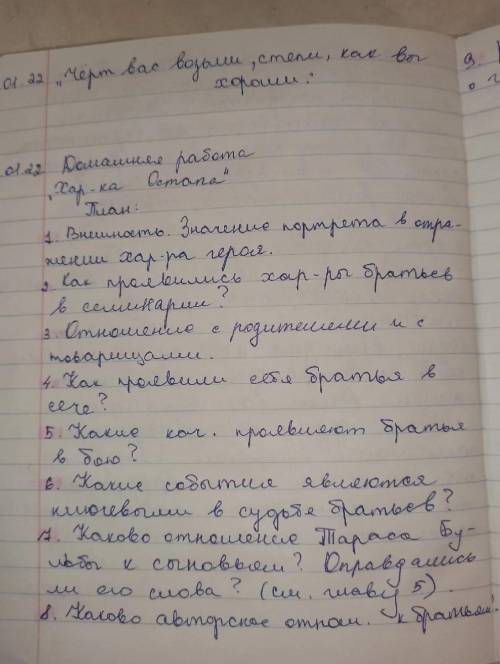 01.22 „Чёрт вас возьми, степи, как вы
хороши."
01.22 Домашняя работа
„Хар-ка Остапа"
План:
1. Внешность. Значение портрета в отра-
жении хар-ра героя.
2. Как проявились хар-ры братьев
в семинарии?
3. Отношение с родителями и с
товарищами.
4. Как проявили себя братья в
сече?
5. Какие кач. проявляют братья
в бою?
6. Какие события являются
ключевыми в судьбе братьев?
7. Каково отношение Тараса Бу-
льбы к сыновьям? Оправдались
ли его слова? (см. главу 5).
8. Каково авторское отнош. к братьям.
9.